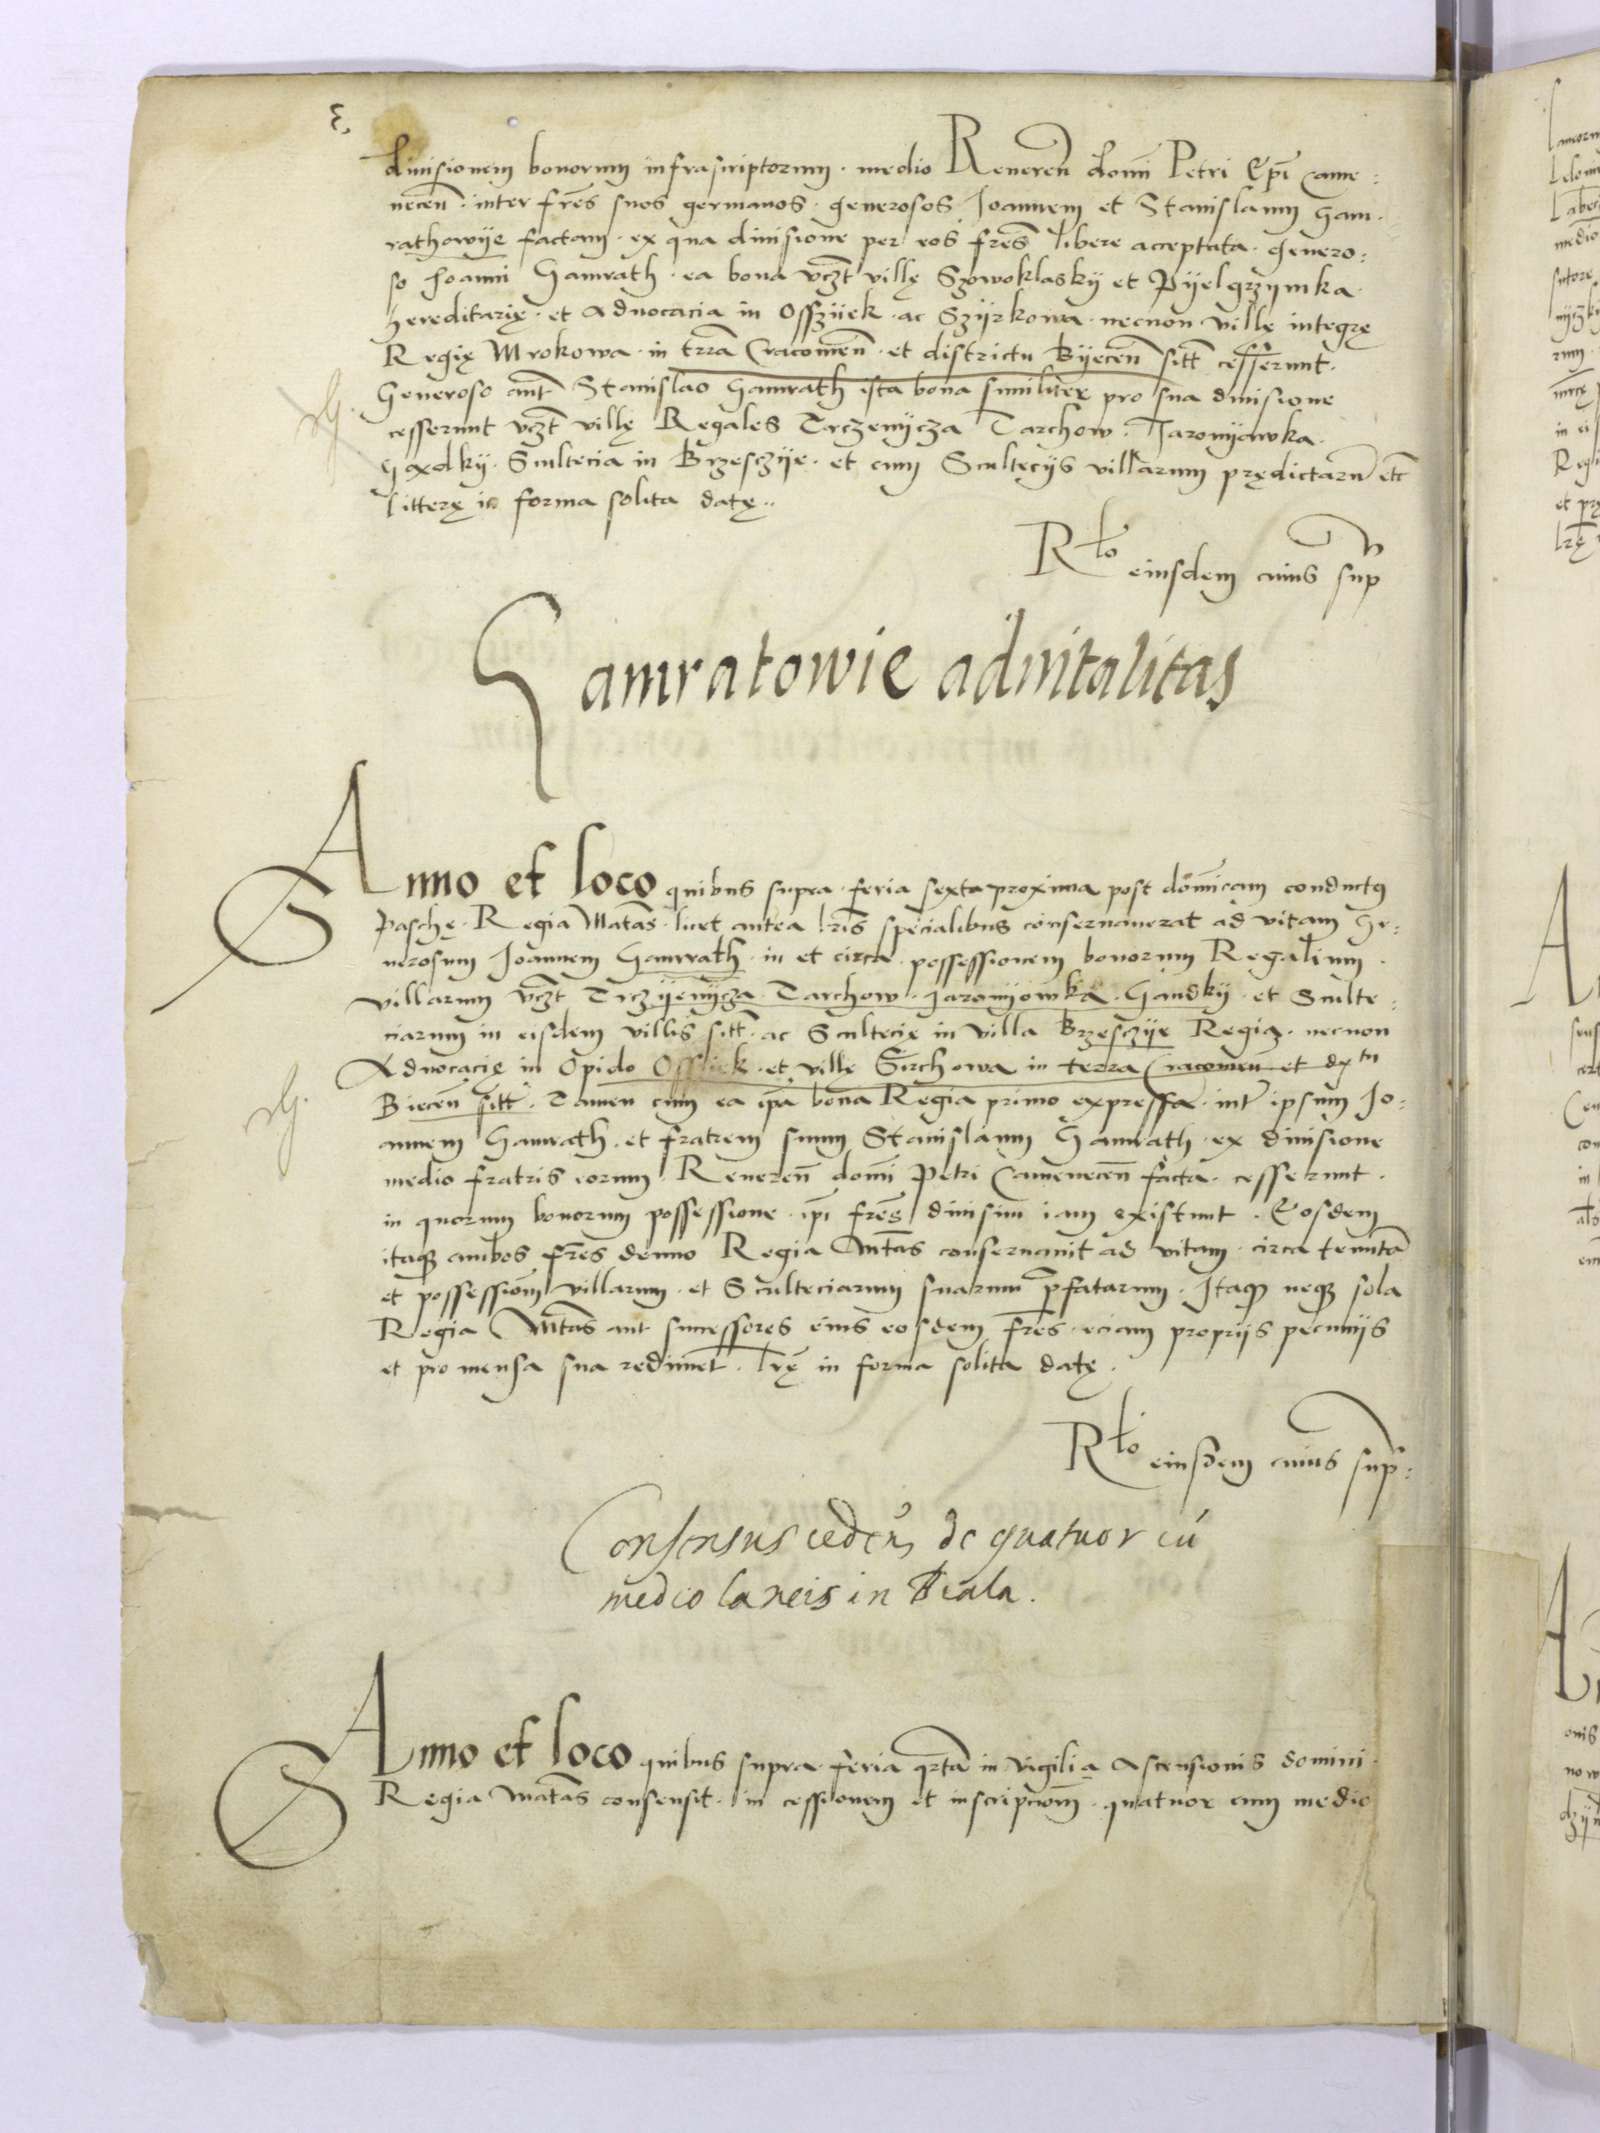 divisionem bonorum infrascriptorum · medio Reveren̄ domī Petri Ep̄i Came:
necen̄ · inter fr̄es suos germanos · generosos Joannem et Stanislaum Gam·
rathowije factam · ex qua divisione per eos fr̄es libere acceptata · genero:
so Joanni Gamrath · ea bona vc̄zt villę Szowoklasky et Pyelgrzymka·
hereditarię · et Advocacia in Osszijek · ac Szyrkowa · necnon villę integrę
Regię Mrokowa · in tr̄ra Cracovien̄ · et districtu Byecen̄ sitt̄ cesserunt·
Generoso aut̄ Stanislao Gamrath ista bona similiter pro sua divisione
cesserunt vc̄zt villę Regales Trczenycza Tarchow · Jaronyowka·
Gądky · Scultecia in Brzesczye · et cum Sculteciis villarum prędictarū etc̄
litterę in forma solita datę ··
Rlo eiusdem cuius sup
Gamratowie advitalitas
Anno et loco quibus supra · feria sexta proxima post dōmicam conductus
Paschę · Regia Matas̄ · licet antea lr̄is specialibus conservaverat ad vitam Ge:
nerosum Joannem Gamrath · in et circa possessionem bonorum Regalium ·
villarum vc̄zt Trczyenycza · Tarchow · Jaronyowka · Gandky · et Sculte:
ciarum in eisdem villis sitt̄ · ac Scultecię in villa Brzesczye Regia · necnon
Advocacię in Opido Ossijek · et villę Sirchowa in terra Cracovien̄ et dx tu
Biecen̄ sitt̄ · Tamen cum ea ip̄a bona Regia primo expressa · inter ipsum Jo:
annem Gamrath · et fratrem suum Stanislaum Gamrath · ex divisione
medio fratris eorum Reveren̄ domī Petri Camenecen̄ facta · cesserunt ·
in quorum bonorum possessione · ip̄i fr̄es divisim iam existunt · Eosdem
itaq̄ ambos fr̄es denuo Regia Mt̄as conservavit ad vitam · circa tenutā
et possessiōm villarum · et Sculteciarum suarum p̄fatarum · Itaq̄ neq̄ sola
Regia Mt̄as aut successores eius eosdem fr̄es · eciam propriis pecuniis
et pro mensa sua redimet · lr̄ę in forma solita datę ·
Rlo eiusdem cuius sup:
Consensus ceden̄ de quatuor cū
medio laneis in Biala.
Anno et loco quibus supra · feria qrtā in vigilia Ascensionis domini ·
Regia Matas̄ consensit · in cessionem et inscripciōm · quatuor cum medio